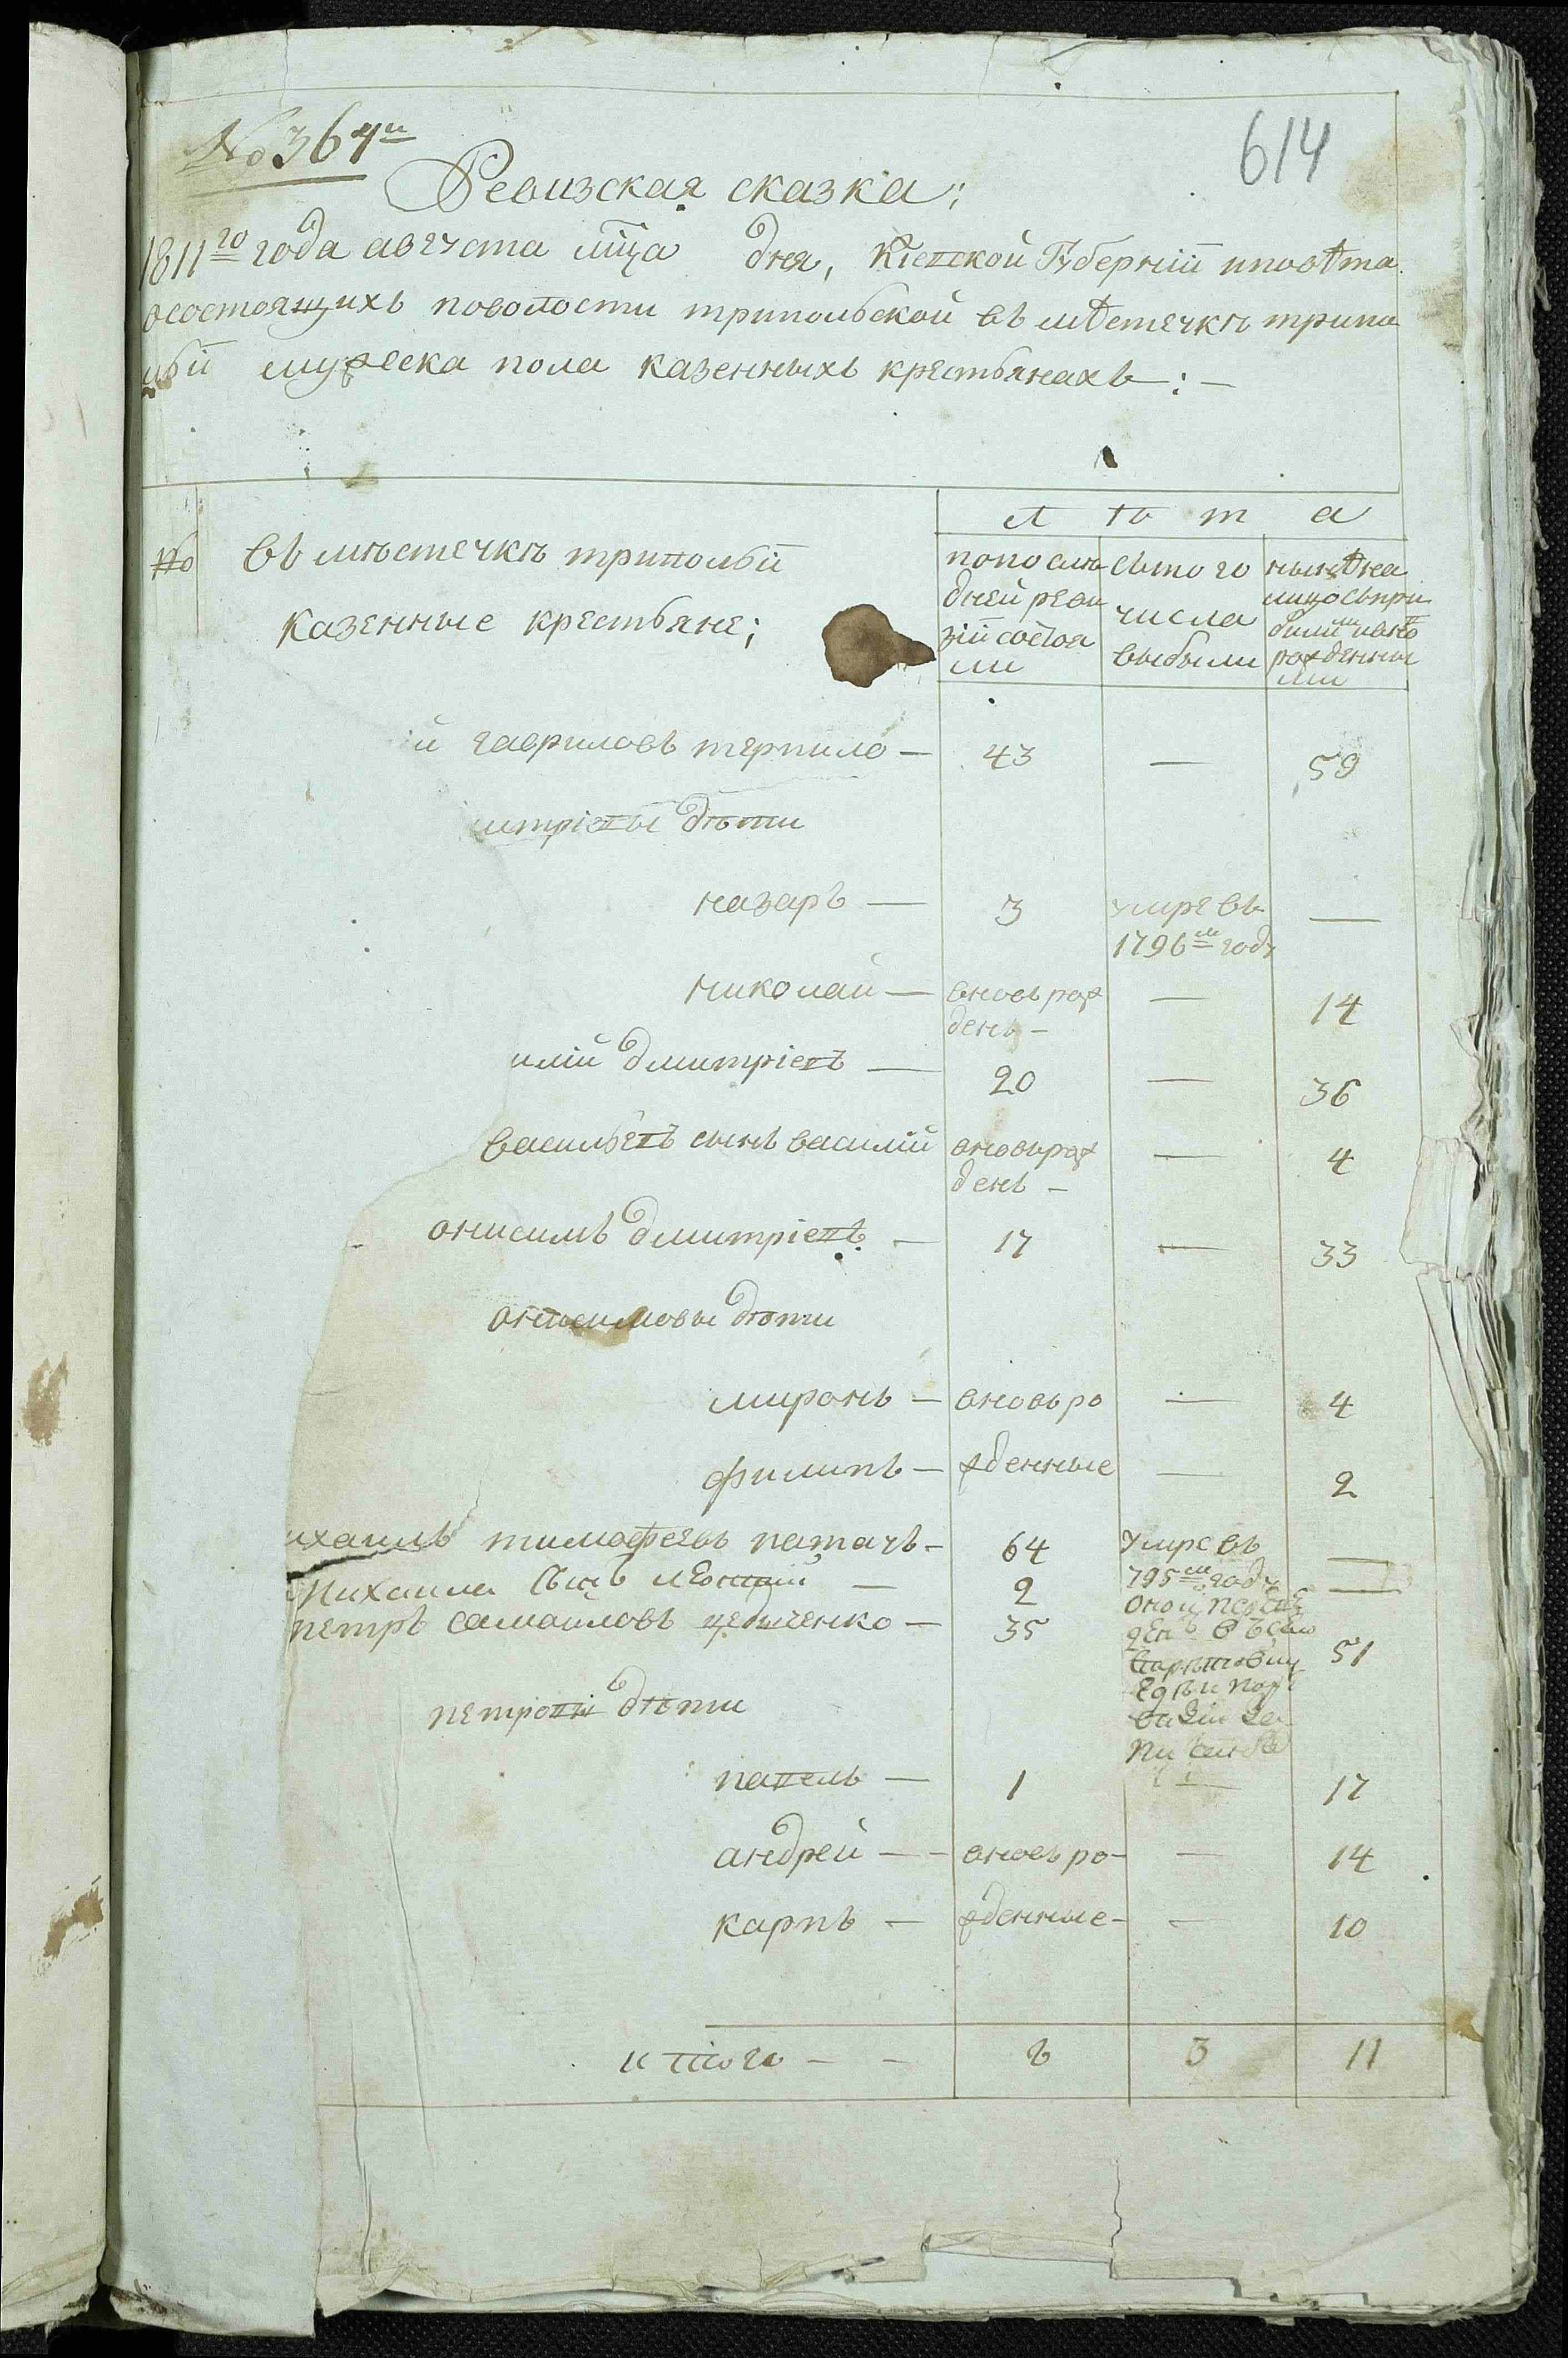 № 364й
614
Ревизская сказка;
1811го года августа мца дня, Кіевской Губерніи иповѣта
осостоящихъ поволости трипольской въ мѣстечкѣ трипо
льѣ мужеска пола казенныхъ крестьянахъ:—
№
въ мѣстечкѣ трипольи
казенные крестьяне;
Л ѣ т а
попослѣ
дней реви
зіи состоя
ли
сътого
числа
выбыли
нынѣ на
лицо съпри
былими ивно
рожденны
ми
й гавриловъ терпило — 43 — 59
митріевы дѣти
назаръ — 3 умре въ —
1796м году
николай — вновь рож — 14
денъ —
илій дмитріевъ — 20 — 36
васильевъ сынъ василій вновьрож — 4
денъ —
онисимъ дмитріевъ — 17 — 33
онисимовы дѣти
миронъ — вновьро — 4
филипъ — жденные — 2
ихаилъ тимофеевъ патачъ — 64 умре въ —
795м году
михаила сынъ — 2 —
петръ самоиловъ — 35 51
петровы дѣти
павелъ — 1 — 17
андрей — — вновь ро — — 14
карпъ — жденные — — 10
итого — — 8 3 11